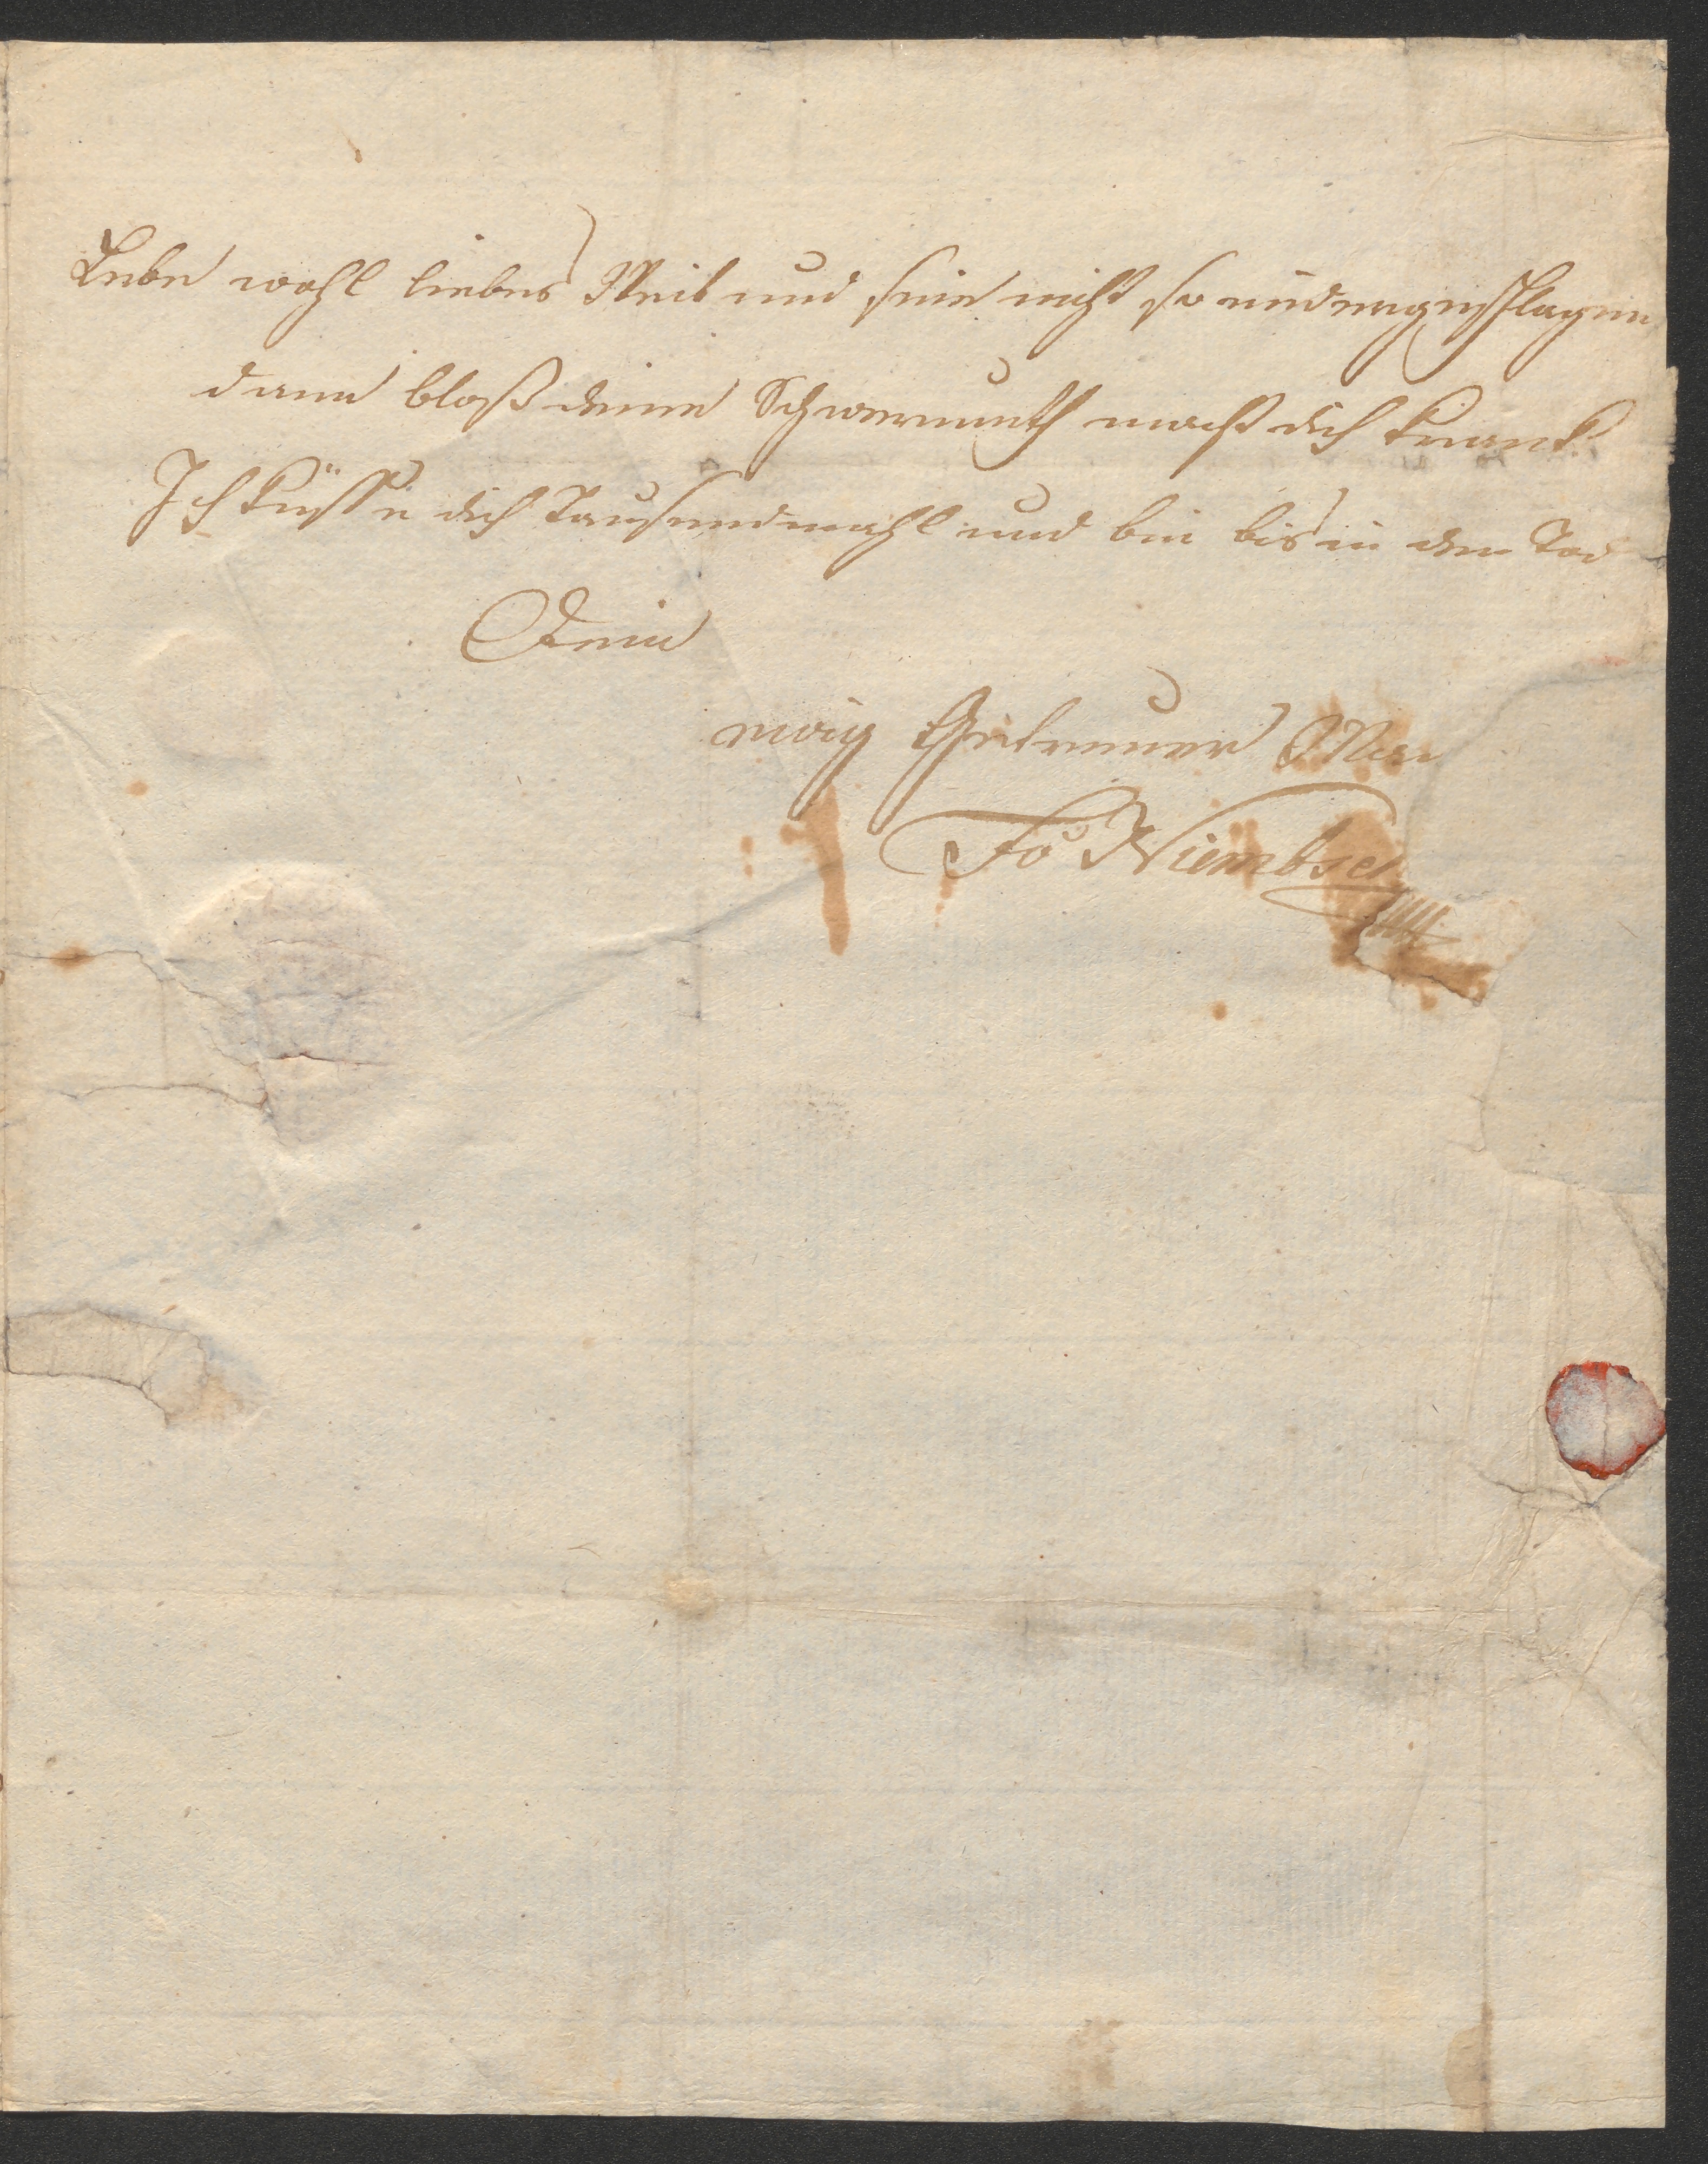 Lebe wohl liebes Weib und seie nicht so niedergeschlagen
dann bloß deine Schwermuth macht dich krank.
Ich küsse dich Tausendmahl und bin bis in den Tod
Dein
ewig Getreuer Man
Fö Niembsch